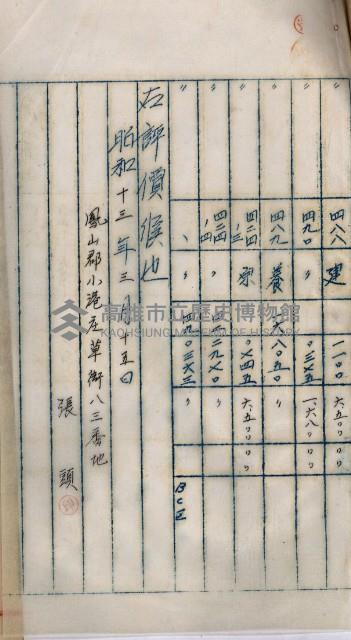 〃 四八八 建 一一〇〇 六五〇〇〇
〃 四九〇 〃 〇三七五 一、六八〇〇〇
〃 四八九 養 〃
〃 四二四ノ三 〇七四五 六、五〇〇〇〇
〃 四二四ノ四 〃 〃
〃 〃 四九〇三六三 〃 BC区
右評價候也
昭和十三年三月十五日
鳳山郡小港庄草衙八三番地
張頭
高雄市立歷史博物館
KAOHSIUNG MUSEUM OF HISTORY